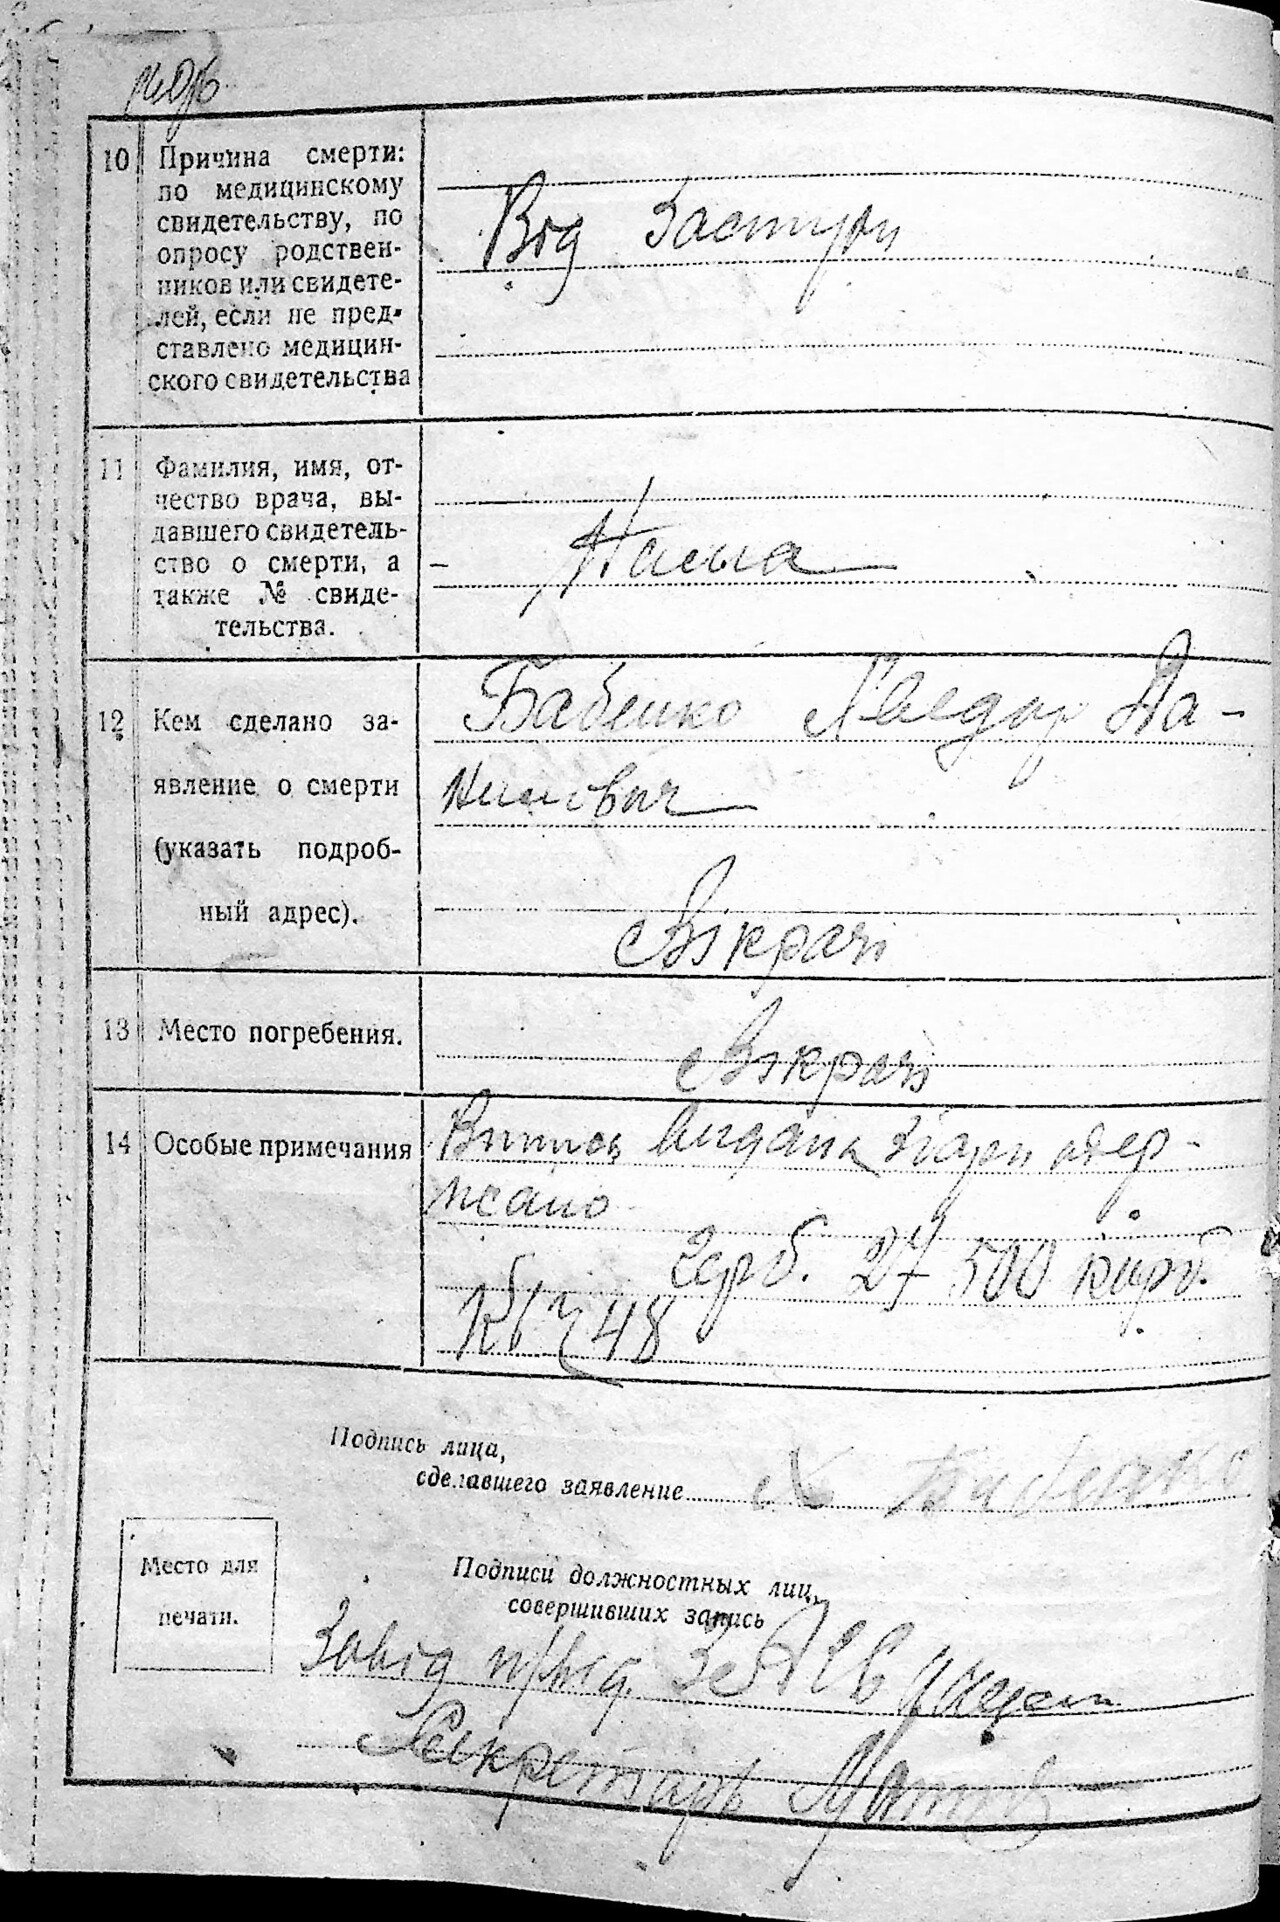 10 Причина смерти:
по медицинскому
свидетельству, по
опросу родствен-
ников или свидете-
лей, если не пред-
ставлено медицин-
ского свидетельства
Від Застуди
11 Фамилия, имя, от-
чество врача, вы-
давшего свидетель-
ство о смерти, а
также № свиде-
тельства.
- Нема
12 Кем сделано за-
явление о смерти
(указать подроб-
ный адрес).
Бабенко Федор Да-
нилович
Вікрачі
13 Место погребения.
Вікрачі
14 Особые примечания
Випись видана Збори одер-
жано
2 крб. 27 500 карб.
48
Подпись лица,
сделавшего заявление
Бабенко
Подписи должностных лиц,
совершивших запись
Место для
печати.
Завід п/від. ЗАГС
Секретарь